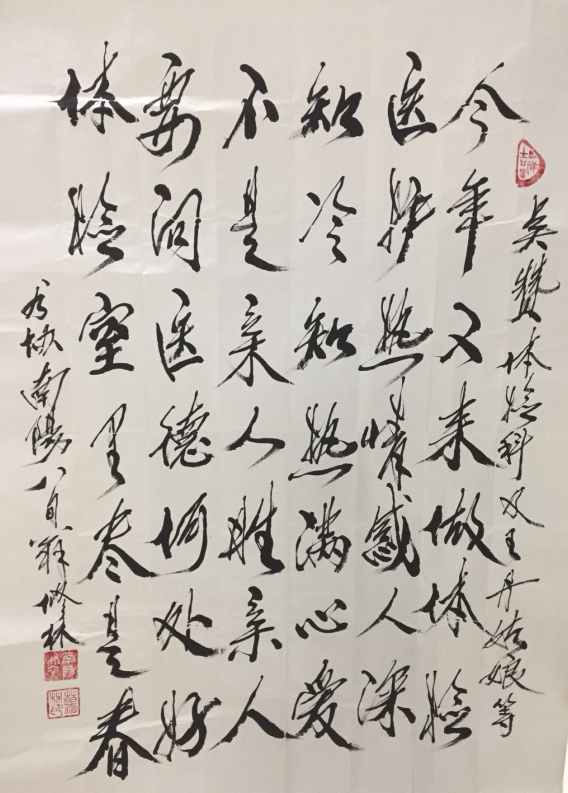 点赞体检科双王丹姑娘等
今年又来做体检
医护热情感人深
知冷知热满心爱
不是亲人胜亲人
要问医德何处好
体检室里尽是春
南阳八旬翁修林